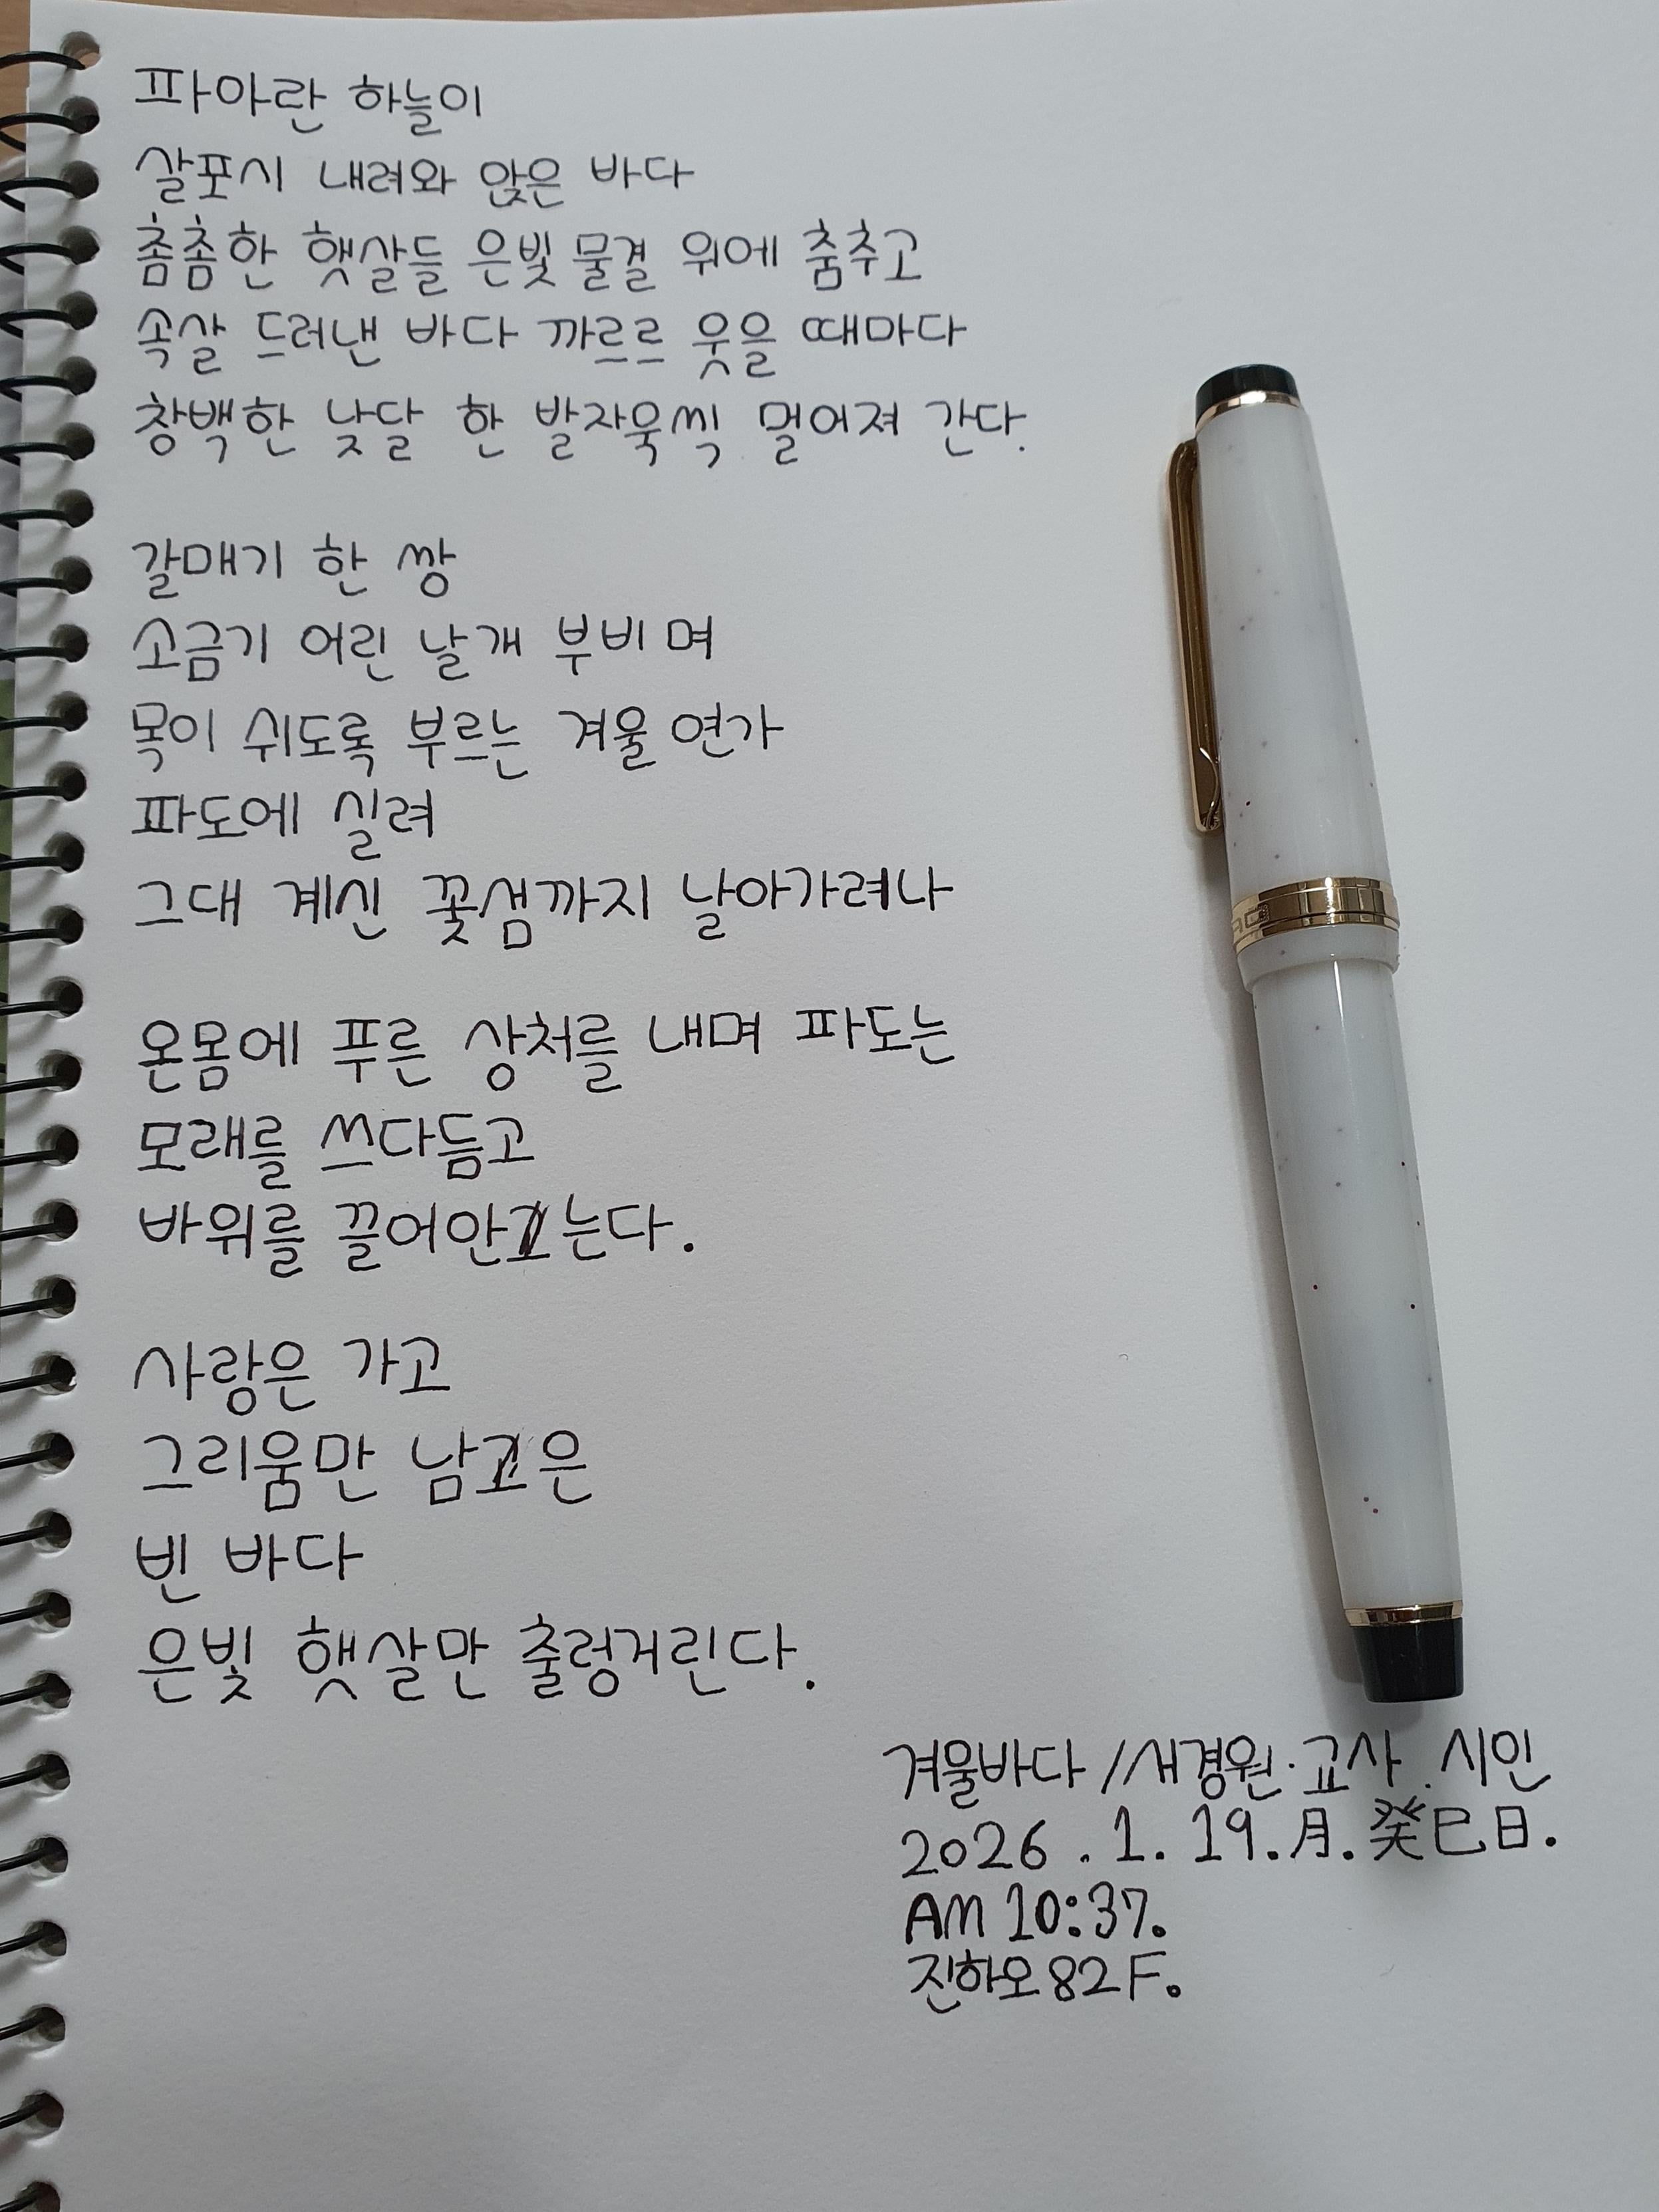 파아란 하늘이
살포시 내려와 앉은 바다
촘촘한 햇살들 은빛 물결 위에 춤추고
속살 드러낸 바다 까르르 웃을 때마다
창백한 낮달 한 발자욱씩 멀어져 간다.
갈매기 한 쌍
소금기 어린 날개 부비며
목이 쉬도록 부르는 겨울 연가
파도에 실려
그대 계신 꽃섬까지 날아가려나
온몸에 푸른 상처를 내며 파도는
모래를 쓰다듬고
바위를 끌어안고는다.
사랑은 가고
그리움만 남고은
빈 바다
은빛 햇살만 출렁거린다.
겨울바다 / 서경원·교사. 시인
2026. 1. 19. 月. 癸巳日.
AM 10:37.
진하오82F.